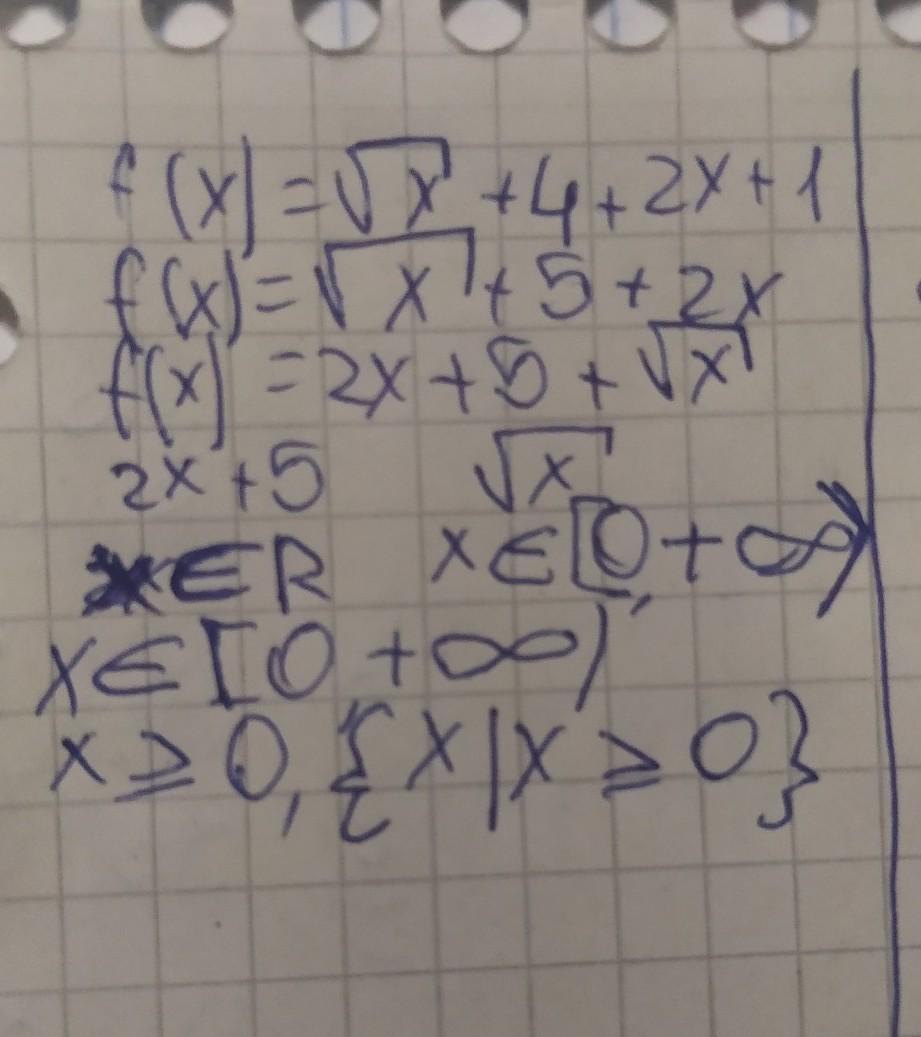 f(x) = √x + 4 + 2x + 1
f(x) = √x + 5 + 2x
f(x) = 2x + 5 + √x
2x + 5 √x
x ∈ R x ∈ [0, + ∞)
x ∈ [0 + ∞)
x ≥ 0, {x | x ≥ 0}